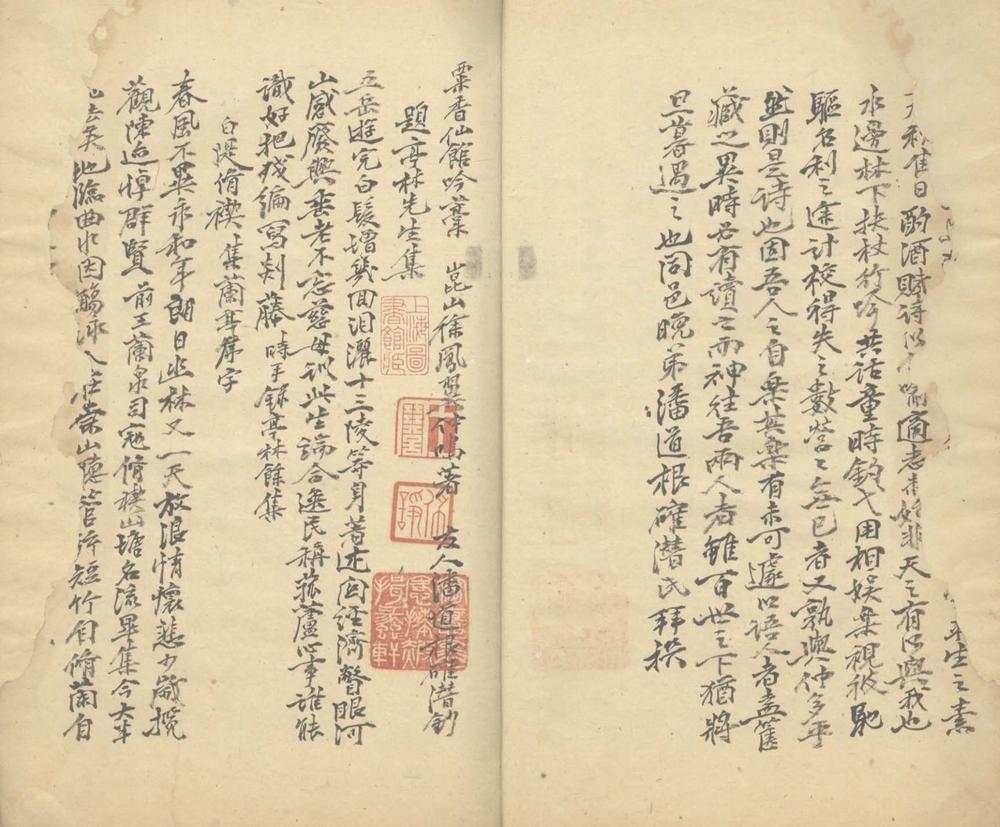 平生之素
秋隹日酌酒賦詩以適志未始非天之有以與我也
水邊林下扶杖行吟共話童時釣弋用相娛樂視彼馳
驅名利之途計校得失之數營營無已者又孰與仲多乎
然則是詩也因吾人之自樂其樂有未可遽以語人者盍篋
藏之異時必有讀之而神往吾兩人者雖百世之下猶將
旦暮遇之也同邑晚弟潘道根確潛氏拜撰
粟香仙館吟藁 崑山徐鳳 著 友人潘道根確潛鈔
題亭林先生集
五岳遊完白髮增幾回淚灑十三陵等身著述因經濟瞥眼河
山感廢興垂老不忘慈母訓此生端合逸民稱菰蘆心事誰能
識好把殘編寫剡藤 時手錄亭林餘集
白堤脩禊集蘭亭序字
春風不異永和年朗日幽林又一天放浪情懷悲少歲攬
觀陳迹悼群賢 前王蘭泉司寇脩禊山塘名流畢集今大半
矣 地臨曲水因觴詠人 崇山聽管 短竹自脩蘭自
上海圖書館藏